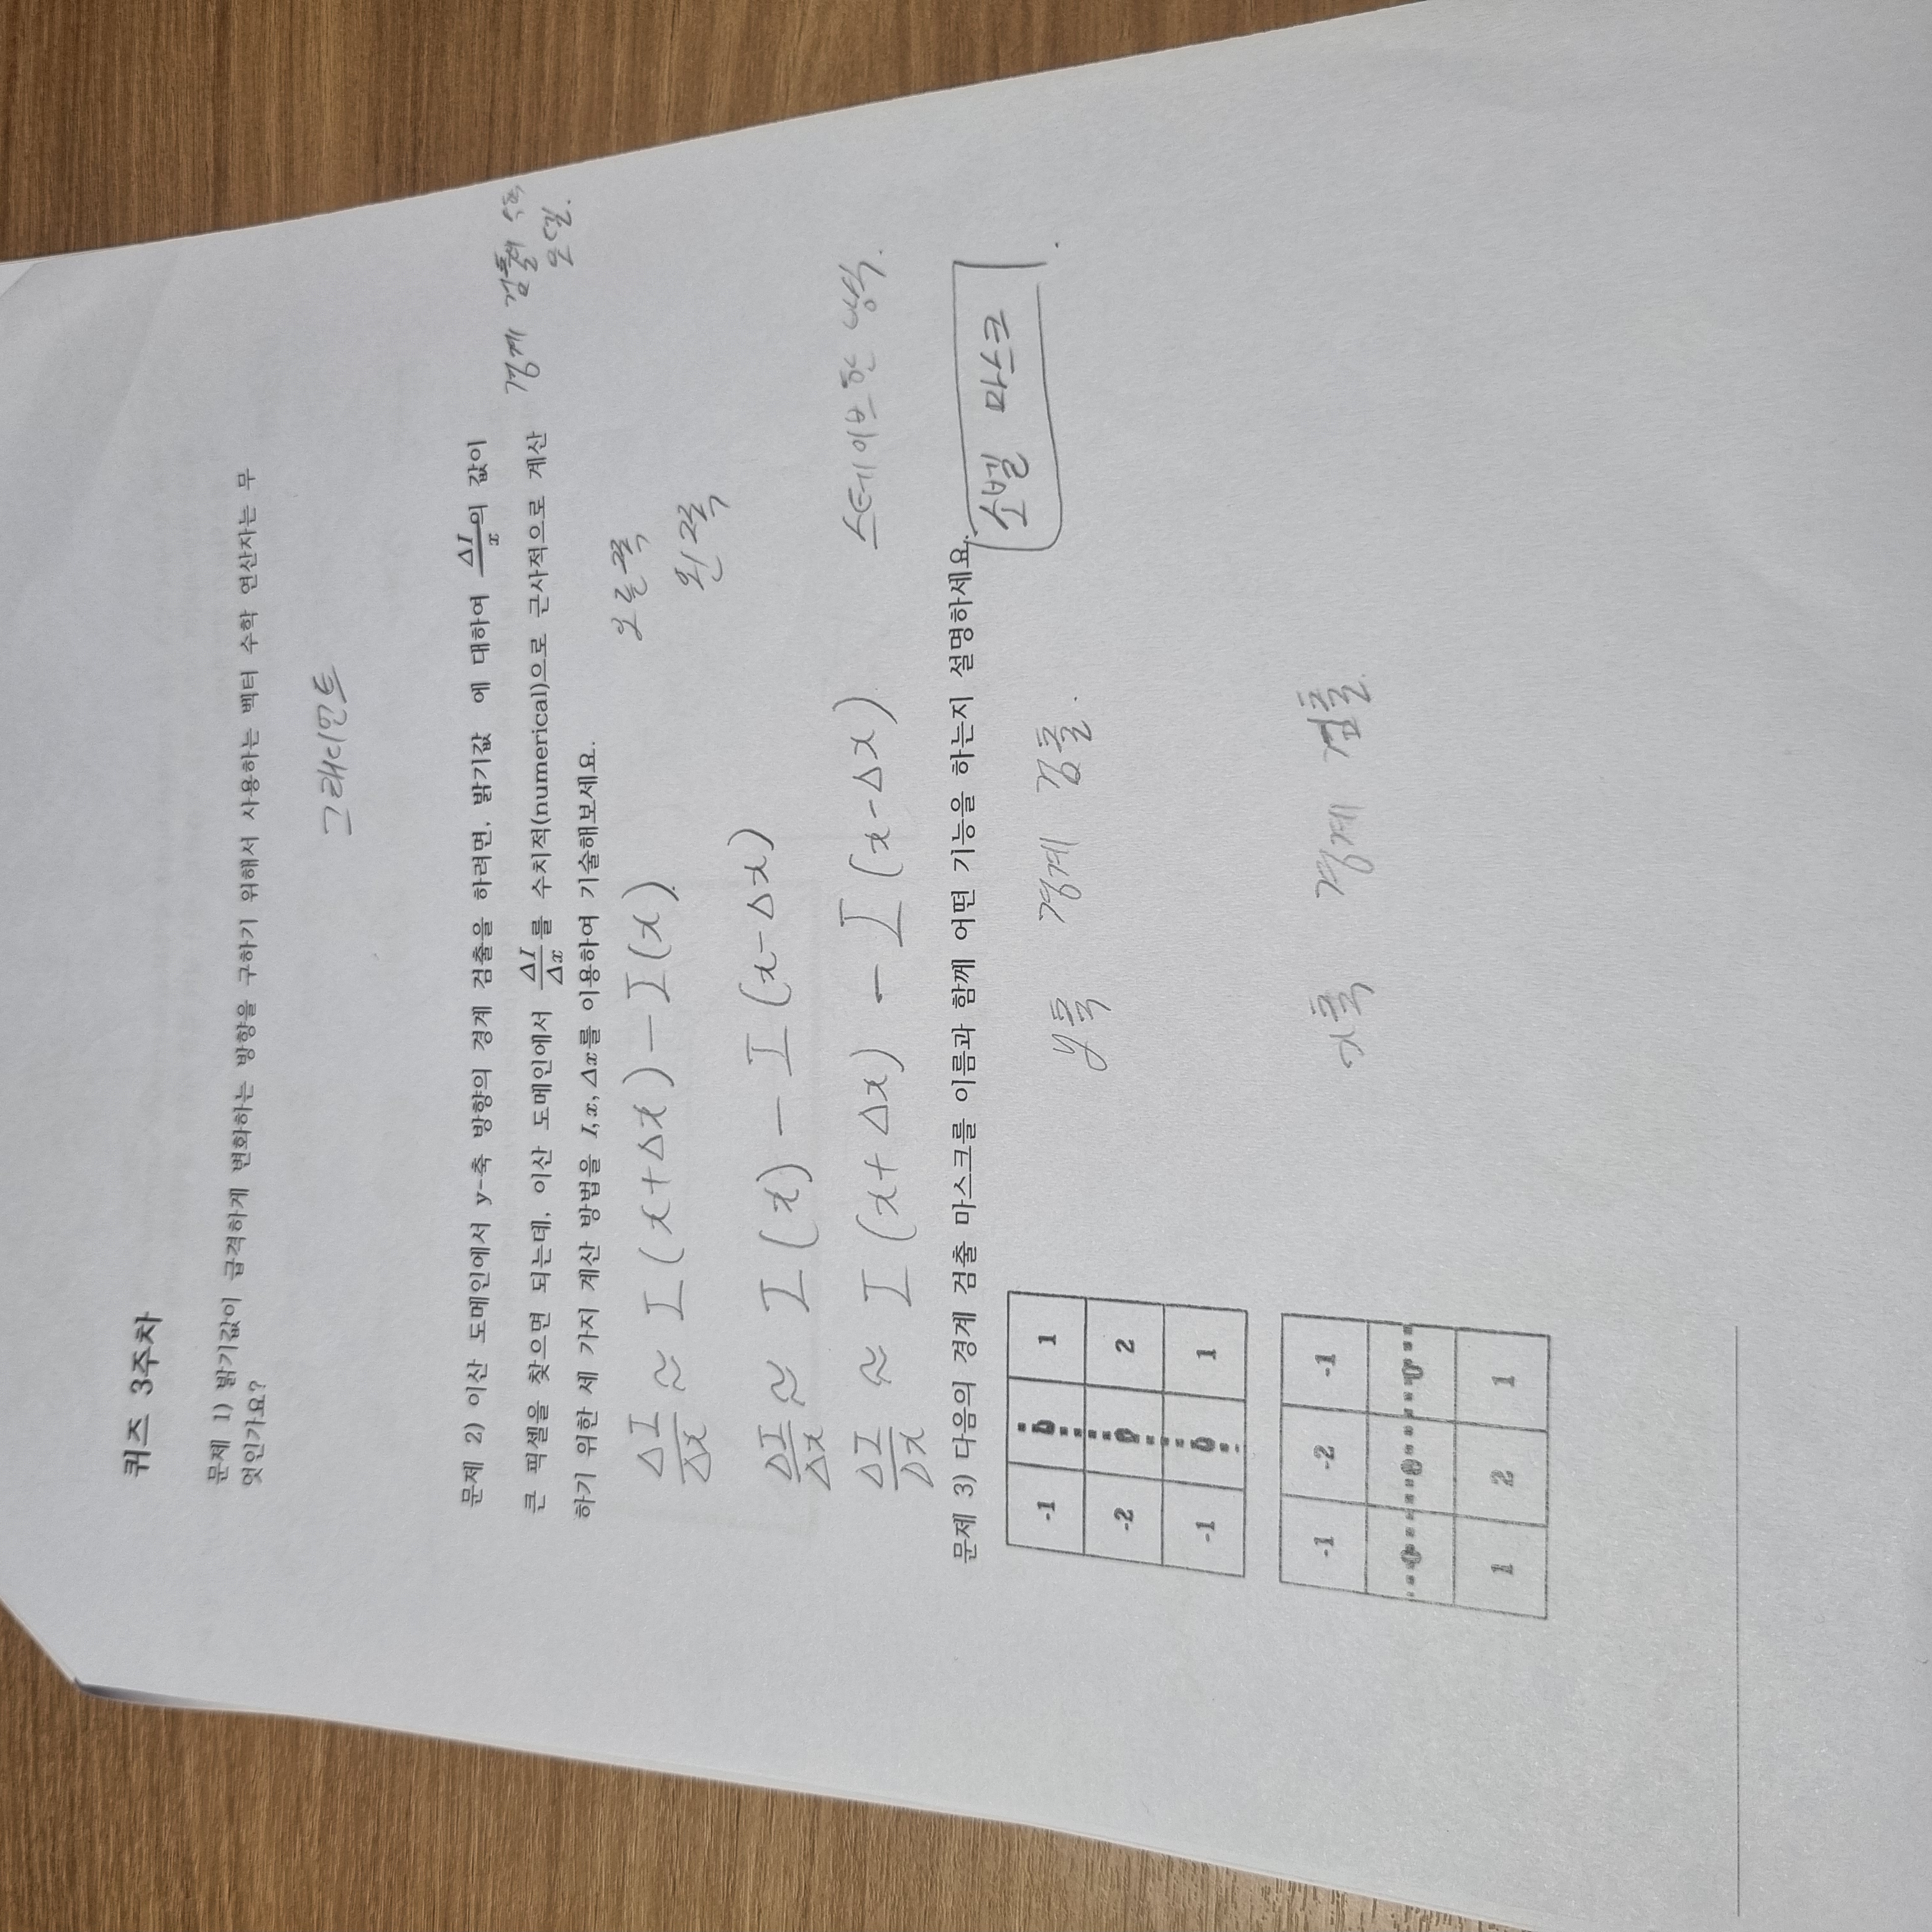 퀴즈 3주차
문제 1) 밝기값이 급격하게 변화하는 방향을 구하기 위해서 사용하는 벡터 수학 연산자는 무
엇인가요?
그래디언트
문제 2) 이산 도메인에서 y-축 방향의 경계 검출을 하려면, 밝기값 에 대하여 ΔI/x의 값이
큰 픽셀을 찾으면 되는데, 이산 도메인에서 ΔI/Δx를 수치적(numerical)으로 근사적으로 계산
하기 위한 세 가지 계산 방법을 I, x, Δx를 이용하여 기술해보세요.
경계 검출의
모델.
ΔI/Δx ≈ I(x+Δx) - I(x).
오른쪽
왼쪽
ΔI/Δx ≈ I(x) - I(x-Δx)
ΔI/Δx ≈ I(x+Δx) - I(x-Δx)
스테이브한 방식.
문제 3) 다음의 경계 검출 마스크를 이름과 함께 어떤 기능을 하는지 설명하세요.
소벨 마스크
-1 0 1
-2 0 2
-1 0 1
y축 경계 검출.
-1 -2 -1
0 0 0
1 2 1
x축 경계 검출.